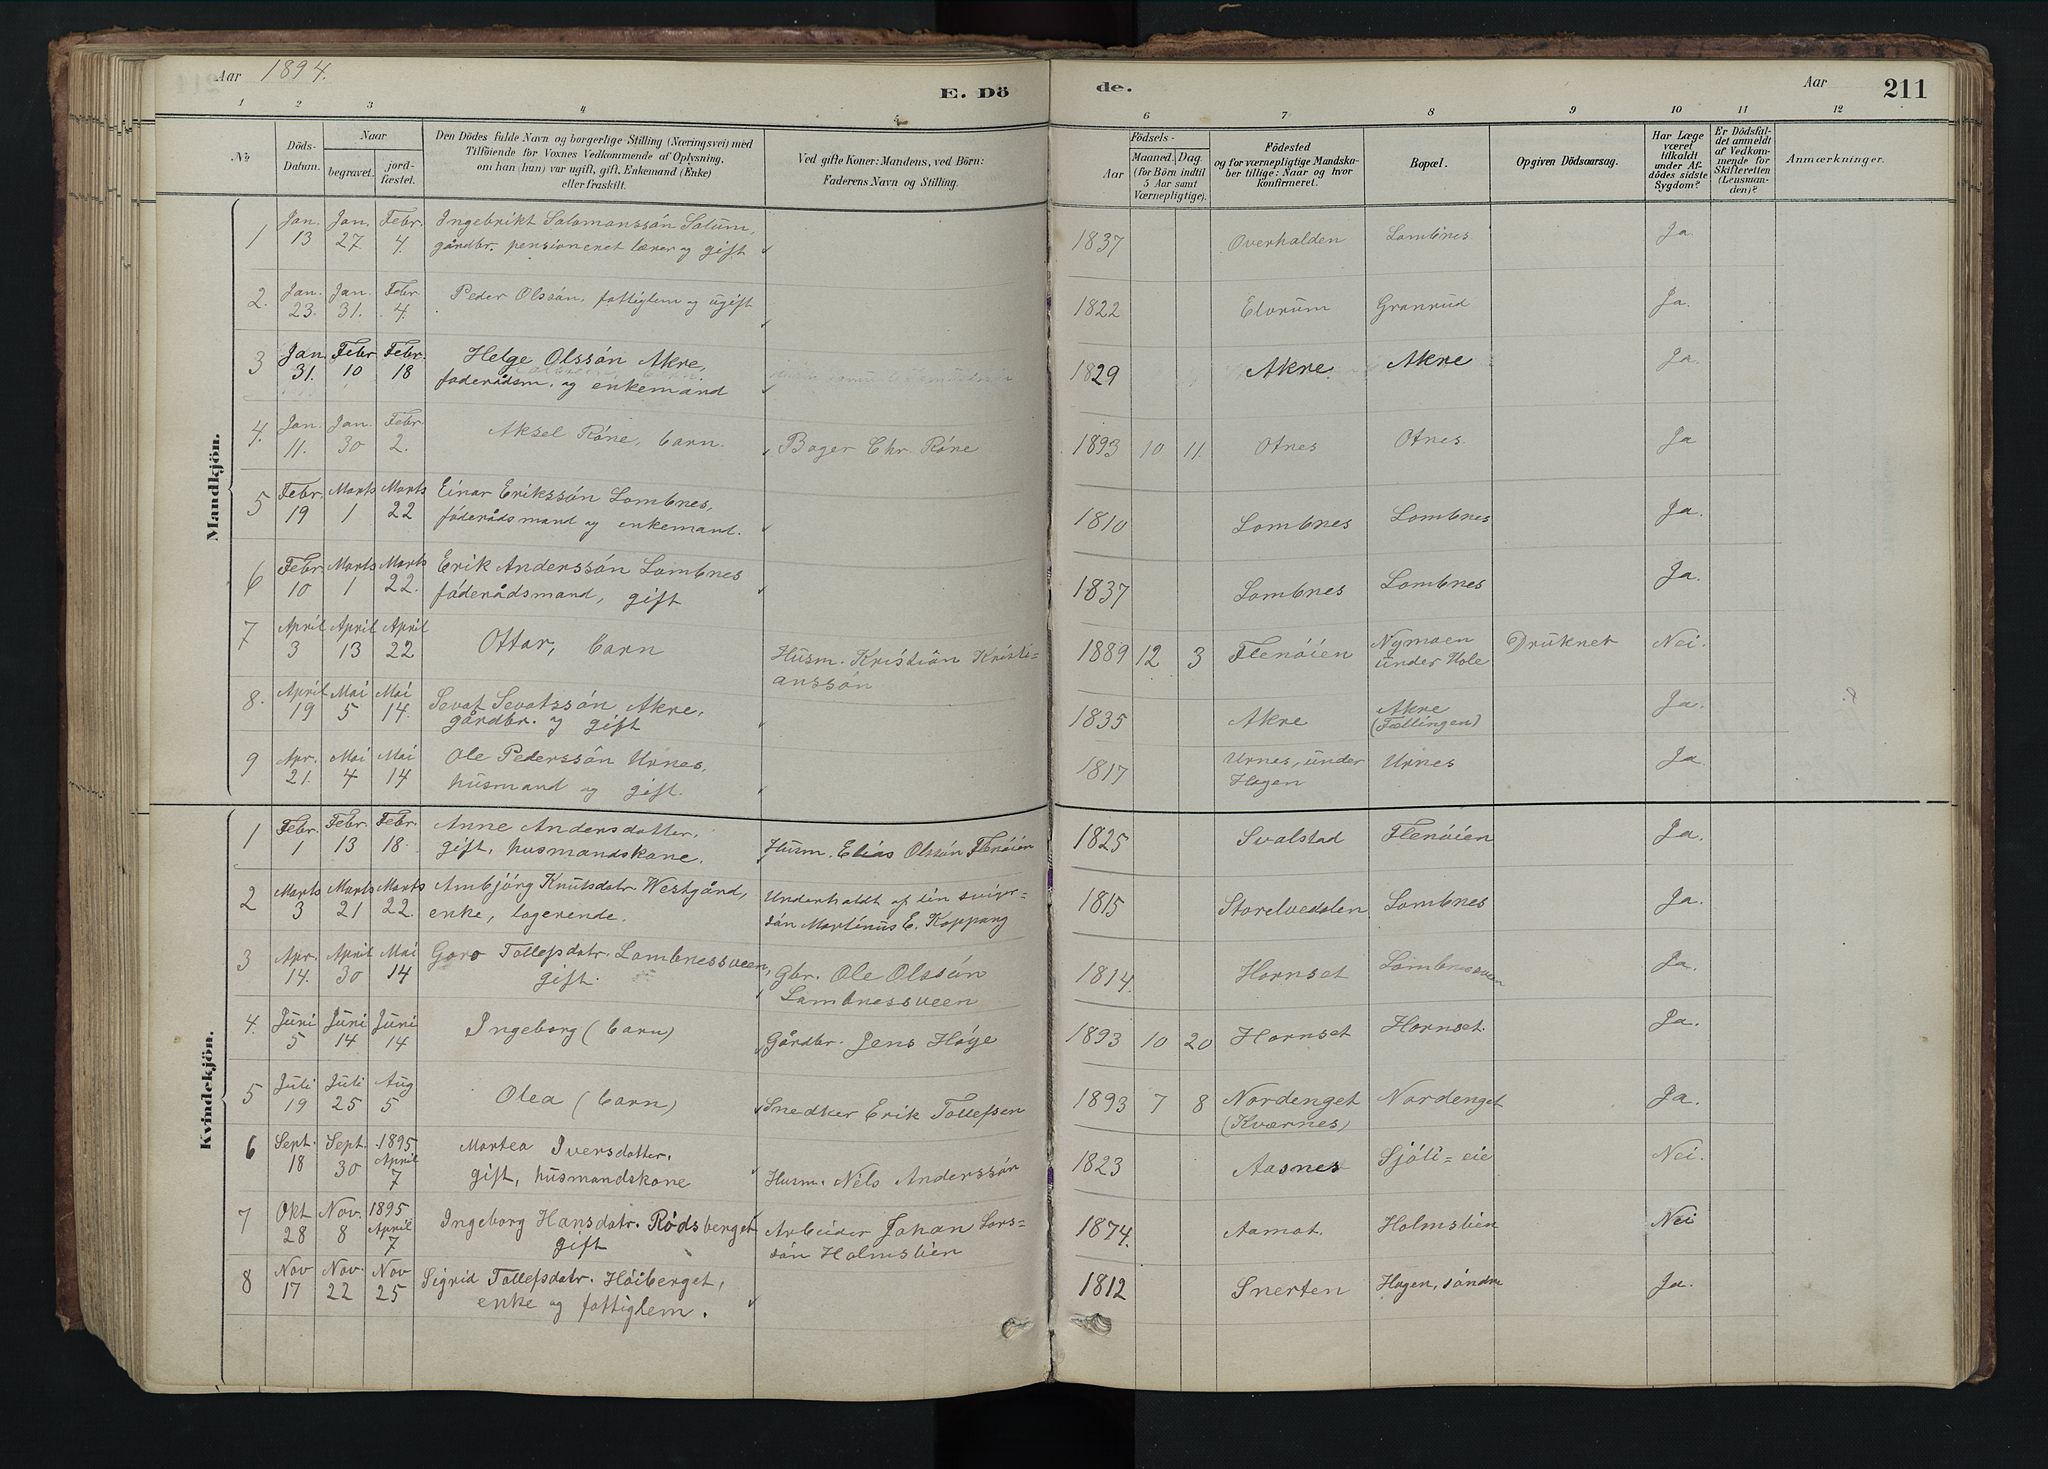 Aar 1894.
E. Dö
de.
Aar
211
1 2 3 4 5 6 7 8 9 10 11 12
No
Döds-Datum.
Naar
begravet.
jord-fæstet.
Den Dödes fulde Navn og borgerlige Stilling (Næringsvei) med
Tilföiende for Voxnes Vedkommende af Oplysning,
om han (hun) var ugift, gift, Enkemand (Enke)
eller fraskilt.
Ved gifte Koner: Mandens, ved Börn:
Faderens Navn og Stilling.
Födsels-
Aar
Maaned. Dag.
(for Börn indtil
5 Aar samt
Værnepligtige).
Födested
og for værnepligtige Mandska-
ber tillige: Naar og hvor
konfirmeret.
Bopæl.
Opgiven Dödsaarsag.
Har Læge
været
tilkaldt
under Af-
dödes sidste
Sygdom?
Er Dödsfal-
det anmeldt
af Vedkom-
mende for
Skifteretten
(Lensman-
den)?
Anmærkninger.
Mandkjön.
1 Jan. 13 Jan. 27 Febr. 4. Ingebrikt Salomonssön Solum, 1837 Overhalden Lombnes Ja.
gårdbr. pensioneret lærer og gift
2. Jan. 23. Jan. 31. Febr. 4. Peder Olssön, fattiglem og ugift 1822 Elvrum Granrud Ja.
3 Jan. 31. Febr 10 Febr. 18 Helge Olssön Akre, 1829 Akre. Akre Ja.
foderådsm. og enkemand
4. Jan. 11. Jan. 30 Febr. 2. Aksel Röne, barn. Bager Chr. Röne 1893 10 11. Otnes Otnes. Ja
5 Febr. 19 Marts 1 Marts 22 Einar Erikssön Lombnes, 1810 Lombnes Lombnes Ja.
föderådsmand og enkemand.
6 Febr. 10 Marts 1 Marts 22. Erik Anderssön Lombnes 1837 Lombnes Lombnes Ja.
föderådsmand, gift
7 April 3 April 13 April 22 Ottar, barn Husm. Kristian Kristi= 1889 12 3 Flenöien Nymoen Druknet Nei.
anssön under Hole
8. April 19 Mai 5 Mai 14. Sevat Sevatssön Akre, 1835 Akre Akre Ja.
gårdbr. og gift (Fællingen)
9 Apr. 21. Mai 4 Mai 14 Ole Pederssön Urnes, 1817 Urnes, under Urnes Ja.
husmand og gift. Hagen
Kvindekjön.
1 Febr. 1 Febr. 13 Febr. 18. Anne Andersdatter, 1825 Svalstad Flenöien Ja.
gift, husmandskone. Husm. Elias Olssön Flenöien
2 Marts 3 Marts 21 Marts 22. Ambjörg Knutsdatr. Westgård, Underholdt af sin sviger= 1815 Storelvedalen Lombnes Ja.
enke, logerende. sön Martinus E. Koppang
3 Apr. 14. April 30 Mai 14 Goro Tollefsdatr. Lombnessveen, Gbr. Ole Olssön 1814. Hornset Lombnessveen Ja.
gift. Lombnessveen
4. Juni 5 Juni 14 Juni 14 Ingeborg (barn) Gårdbr. Jens Höye 1893 10 20 Hornset Hornset. Ja.
5 Juli 19 Juli 25 Aug 5 Olea (barn) Snedker Erik Tollefsen 1893 7 8 Nordenget Nordenget Ja.
(Kværnes)
6 Sept. 18 Sept. 30 1895 April 7 Martea Iversdatter, 1823 Aasnes Sjöli=eie Nei.
gift, husmandskone Husm. Nils Anderssön
7 Okt 28 Nov. 8 1895 April 7 Ingeborg Hansdatr. Rödsberget Arbeider Johan Lars= 1874. Aamot. Holmslien Nei
gift sön Holmslien
8 Nov 17 Nov. 22 Nov 25 Sigrid Tollefsdatr. Höiberget, 1812 Snerten Hagen, söndre Ja.
enke og fattiglem.